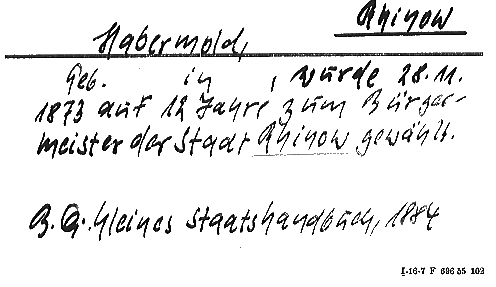 Rhinow
Habermold,
Geb. in , wurde 28.11.
1873 auf 12 Jahre zum Bürger-
meister der Stadt Rhinow gewählt.
B. G. Kleines Staatshandbuch, 1884
I-16-7 F 696 55 102